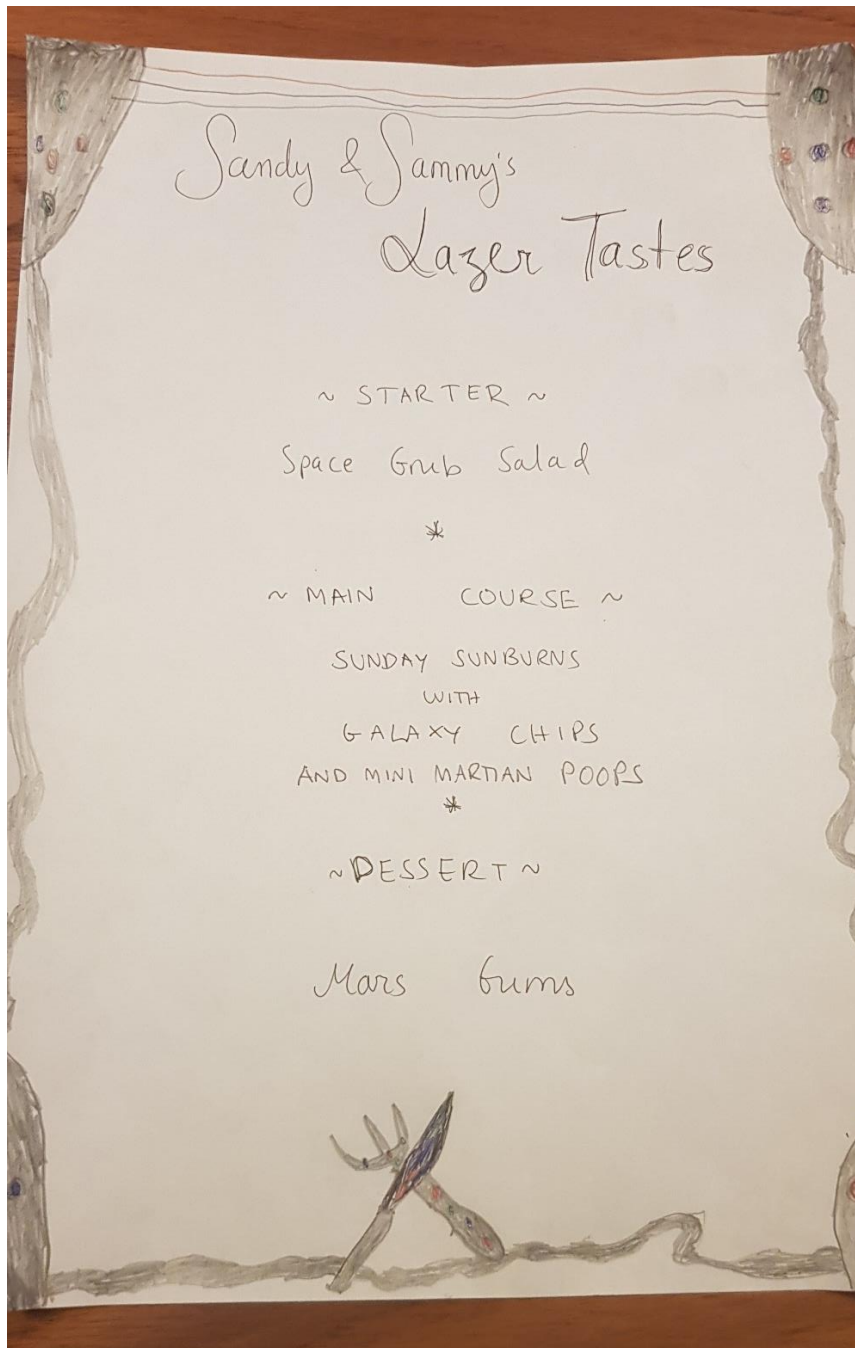 Sandy & Sammy's
Lazer Tastes
~ STARTER ~
Space Grub Salad
*
~ MAIN COURSE ~
SUNDAY SUNBURNS
WITH
GALAXY CHIPS
AND MINI MARTIAN POOPS
*
~ DESSERT ~
Mars Gums